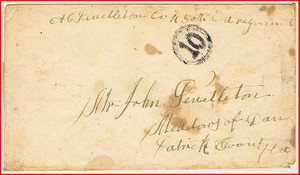 A C Pendleton Co K 50th Va regiment
10
Mr John Pendleton
Meadows of Dan
Patrick County Va